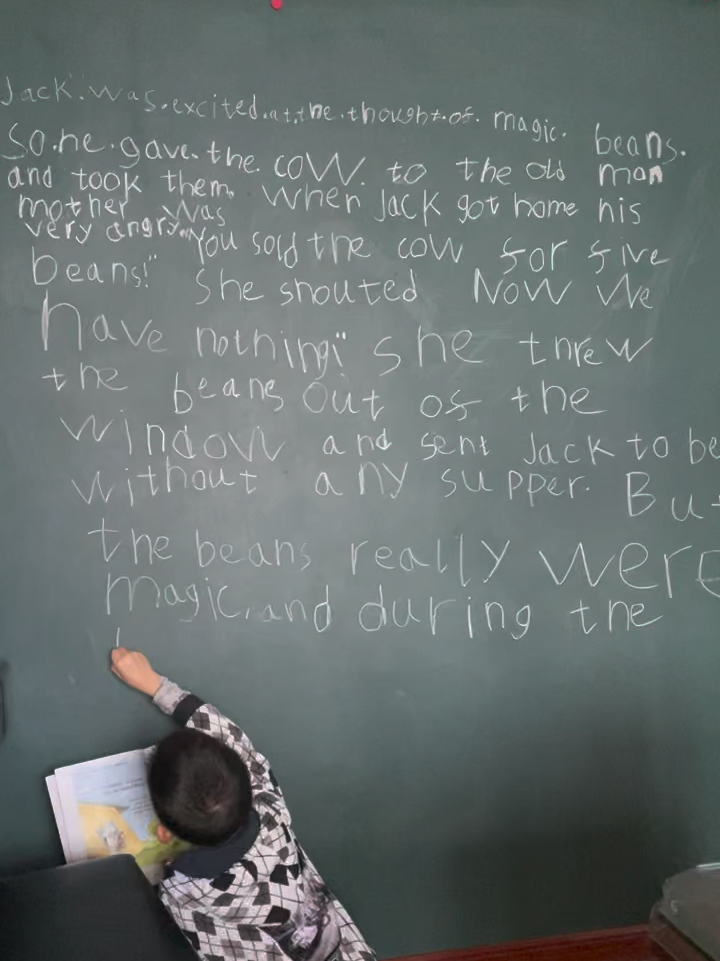 Jack. was. excited. at. the. thought. of. magic. beans.
So. he. gave. the. cow. to the old man
and took them. When Jack got home his
mother was
very angry. "You sold the cow for five
beans!" She shouted Now We
have nothing!" she threw
the beans out of the
window and sent Jack to be
without any supper. But
the beans really were
magic, and during the